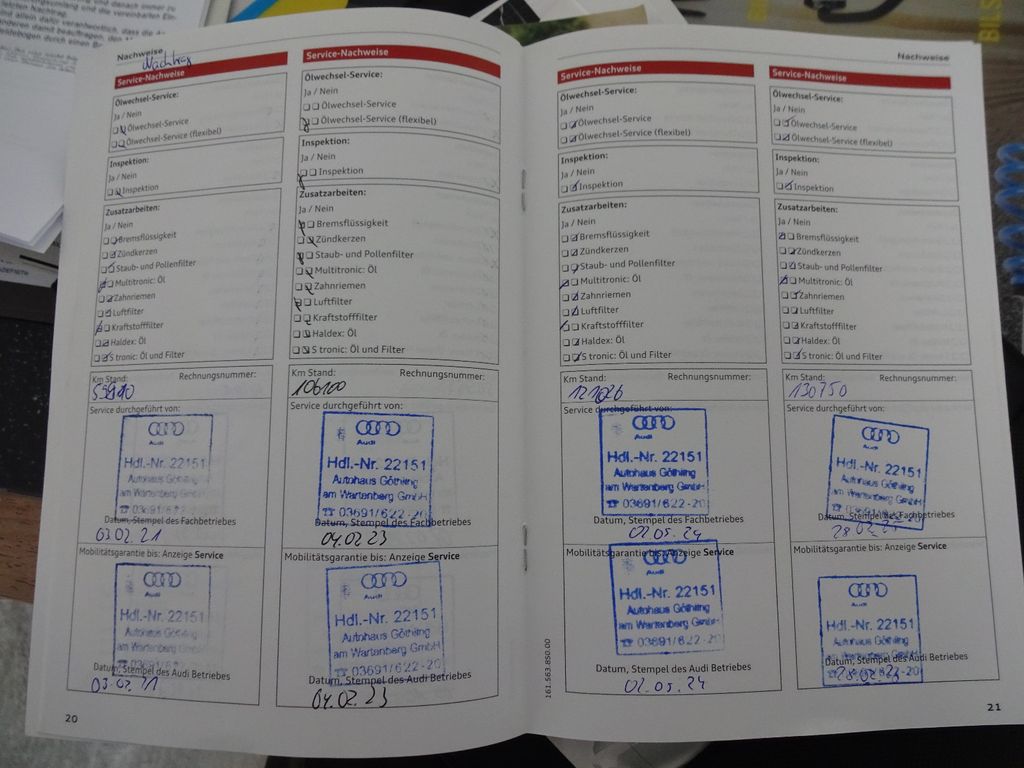 Nachweise
Nachtrag
Service-Nachweise
Ölwechsel-Service:
Ja / Nein
Ölwechsel-Service
Ölwechsel-Service (flexibel)
Inspektion:
Ja / Nein
Inspektion
Zusatzarbeiten:
Ja / Nein
Bremsflüssigkeit
Zündkerzen
Staub- und Pollenfilter
Multitronic: Öl
Zahnriemen
Luftfilter
Kraftstofffilter
Haldex: Öl
S tronic: Öl und Filter
Km Stand: Rechnungsnummer:
Service durchgeführt von:
Audi
Hdl.-Nr. 22151
Autohaus Göthling
am Wartenberg GmbH
☎ 03691/622-20
Datum, Stempel des Fachbetriebes
03.02.21
Mobilitätsgarantie bis: Anzeige Service
Audi
Hdl.-Nr. 22151
Autohaus Göthling
am Wartenberg GmbH
☎ 03691/622-20
Datum, Stempel des Audi Betriebes
03.02.21
20
Service-Nachweise
Ölwechsel-Service:
Ja / Nein
Ölwechsel-Service
Ölwechsel-Service (flexibel)
Inspektion:
Ja / Nein
Inspektion
Zusatzarbeiten:
Ja / Nein
Bremsflüssigkeit
Zündkerzen
Staub- und Pollenfilter
Multitronic: Öl
Zahnriemen
Luftfilter
Kraftstofffilter
Haldex: Öl
S tronic: Öl und Filter
Km Stand: Rechnungsnummer:
106100
Service durchgeführt von:
Audi
Hdl.-Nr. 22151
Autohaus Göthling
am Wartenberg GmbH
☎ 03691/622-20
Datum, Stempel des Fachbetriebes
04.02.23
Mobilitätsgarantie bis: Anzeige Service
Audi
Hdl.-Nr. 22151
Autohaus Göthling
am Wartenberg GmbH
☎ 03691/622-20
Datum, Stempel des Audi Betriebes
04.02.23
Nachweise
Service-Nachweise
Ölwechsel-Service:
Ja / Nein
Ölwechsel-Service
Ölwechsel-Service (flexibel)
Inspektion:
Ja / Nein
Inspektion
Zusatzarbeiten:
Ja / Nein
Bremsflüssigkeit
Zündkerzen
Staub- und Pollenfilter
Multitronic: Öl
Zahnriemen
Luftfilter
Kraftstofffilter
Haldex: Öl
S tronic: Öl und Filter
Km Stand: Rechnungsnummer:
Service durchgeführt von:
Audi
Hdl.-Nr. 22151
Autohaus Göthling
am Wartenberg GmbH
☎ 03691/622-20
Datum, Stempel des Fachbetriebes
02.05.24
Mobilitätsgarantie bis: Anzeige Service
Audi
Hdl.-Nr. 22151
Autohaus Göthling
am Wartenberg GmbH
☎ 03691/622-20
Datum, Stempel des Audi Betriebes
02.05.24
161.563.850.00
Service-Nachweise
Ölwechsel-Service:
Ja / Nein
Ölwechsel-Service
Ölwechsel-Service (flexibel)
Inspektion:
Ja / Nein
Inspektion
Zusatzarbeiten:
Ja / Nein
Bremsflüssigkeit
Zündkerzen
Staub- und Pollenfilter
Multitronic: Öl
Zahnriemen
Luftfilter
Kraftstofffilter
Haldex: Öl
S tronic: Öl und Filter
Km Stand: Rechnungsnummer:
130750
Service durchgeführt von:
Audi
Hdl.-Nr. 22151
Autohaus Göthling
am Wartenberg GmbH
☎ 03691/622-20
Datum, Stempel des Fachbetriebes
Mobilitätsgarantie bis: Anzeige Service
Audi
Hdl.-Nr. 22151
Autohaus Göthling
am Wartenberg GmbH
☎ 03691/622-20
Datum, Stempel des Audi Betriebes
21